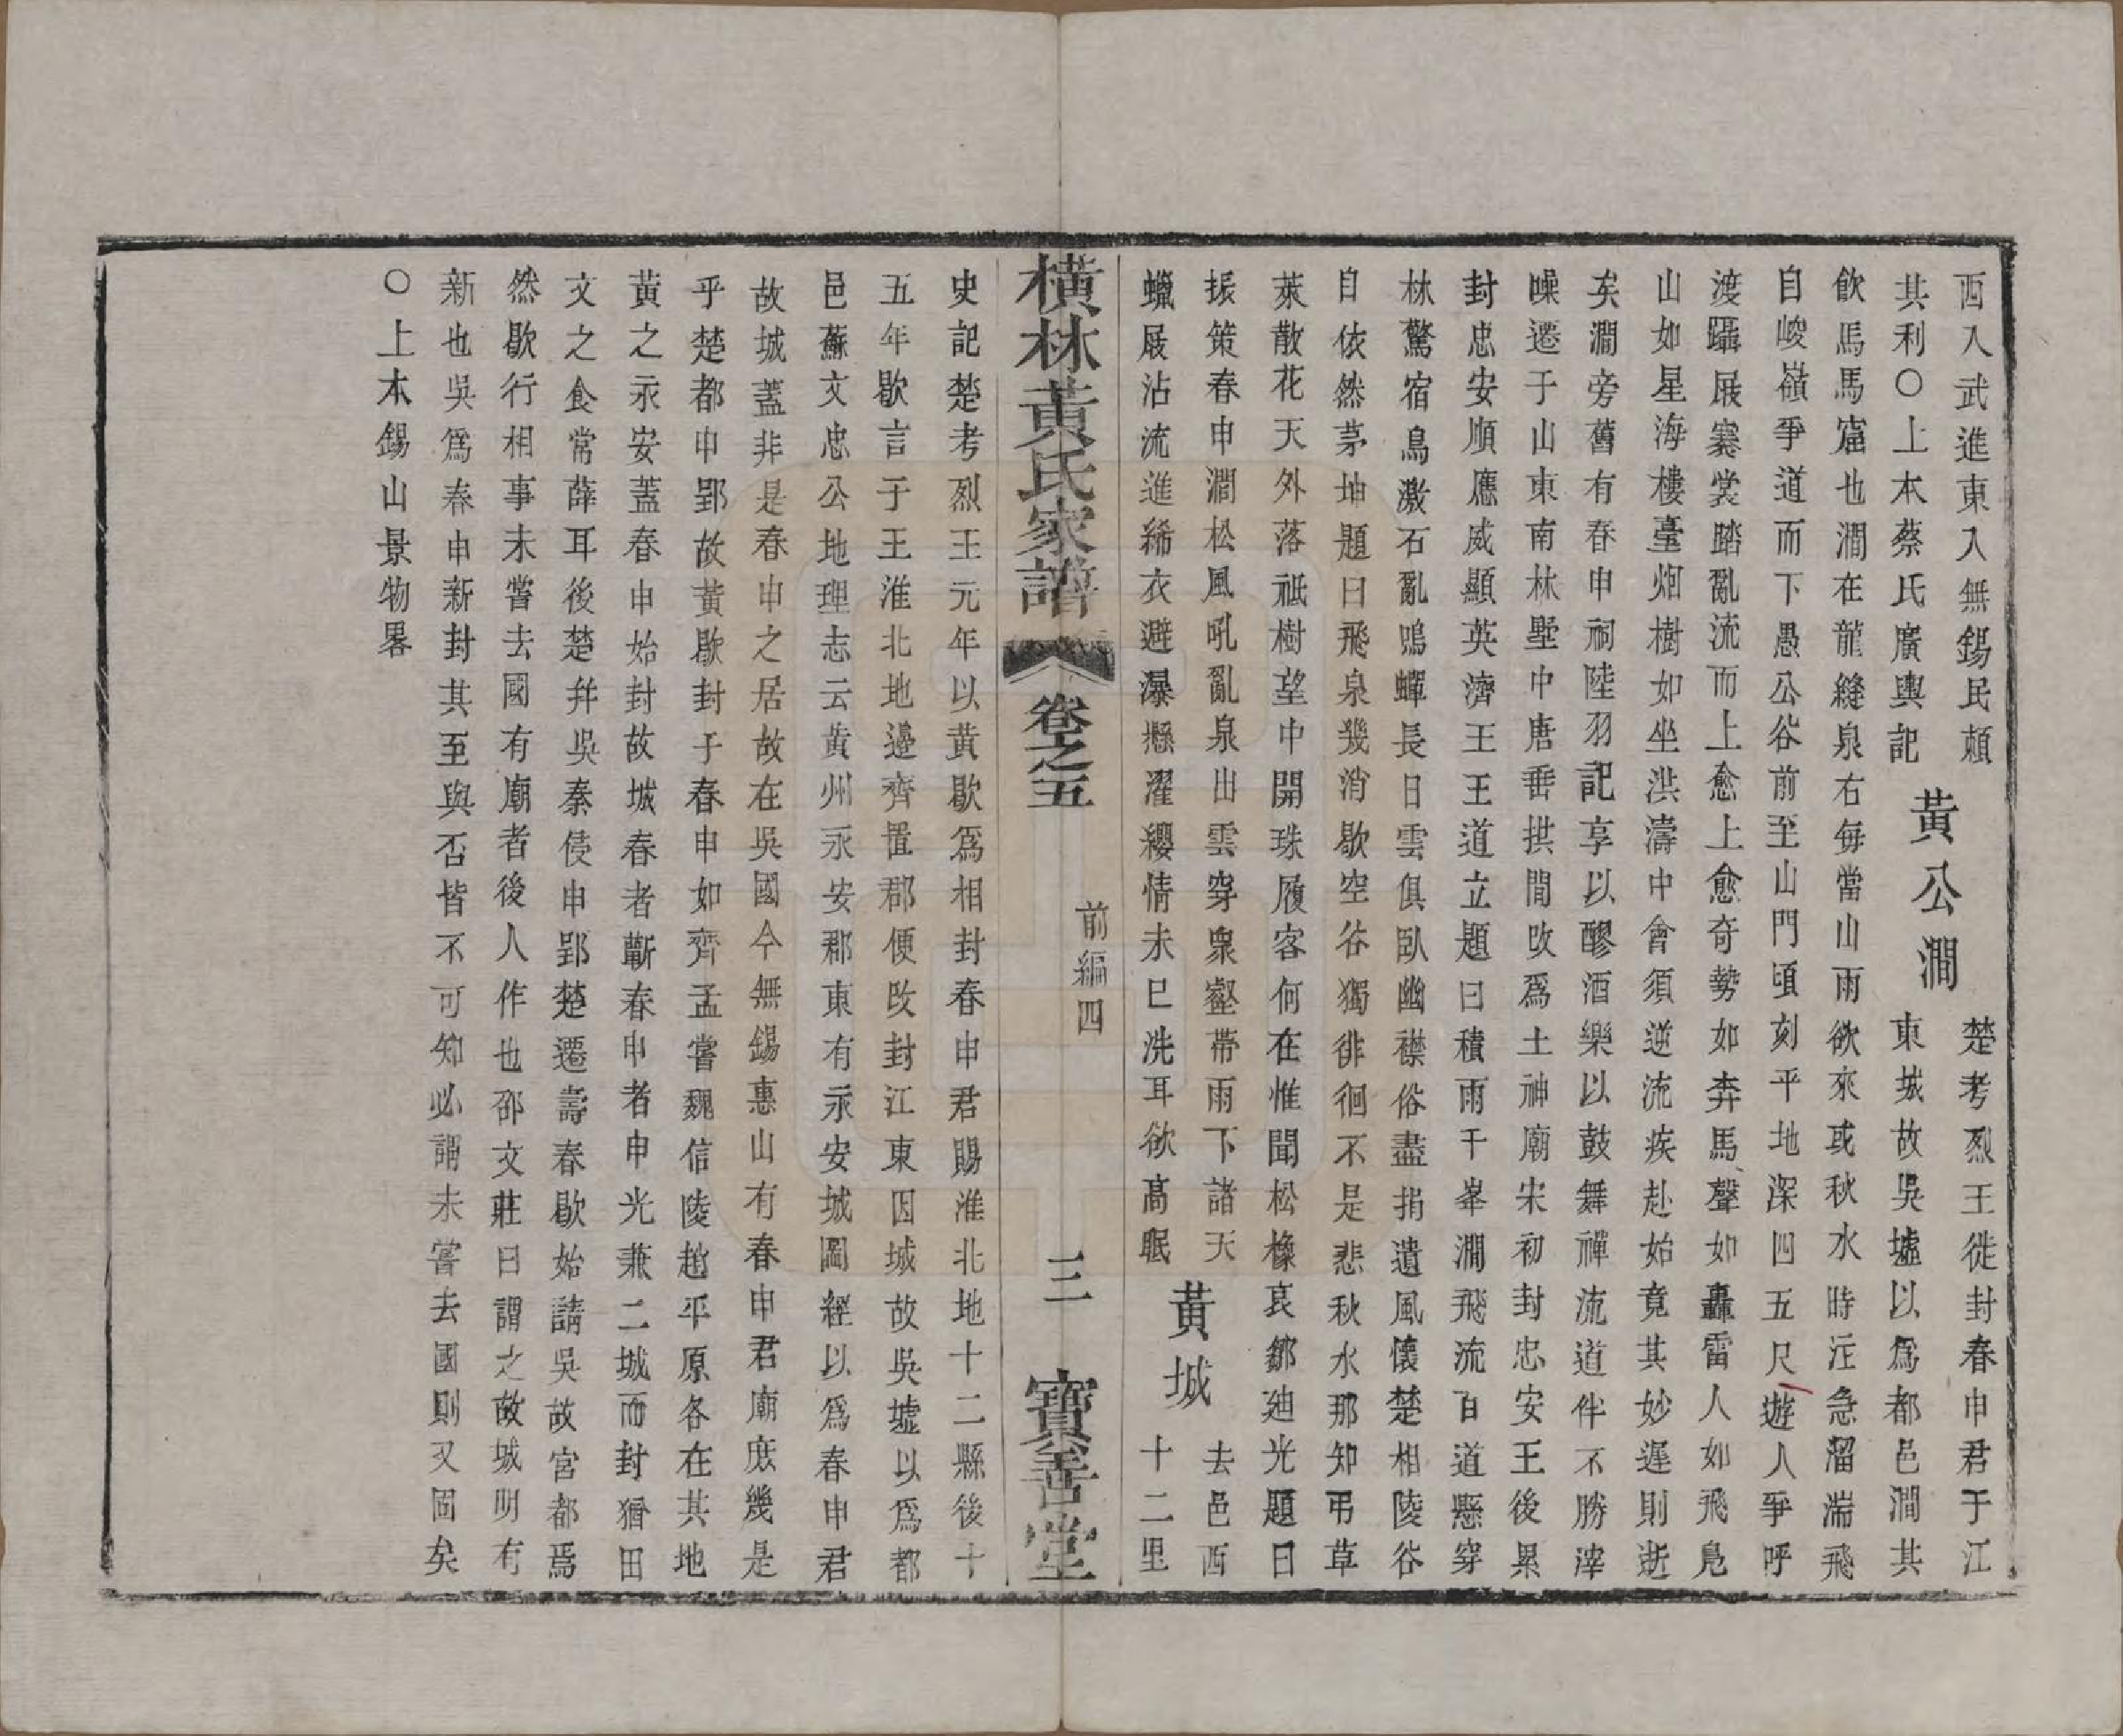 西入武進東入無錫民頼
其利○上本蔡氏廣輿記
黃公澗
楚考烈王徙封春申君于江
東城故吳墟以爲都邑澗其
飲馬馬窟也澗在龍縫泉右每當山雨欲來或秋水時注急溜湍飛
自峻嶺爭道而下愚公谷前至山門頃刻平地深四五尺遊人爭呼
渡躡屐褰裳踏亂流而上愈上愈奇勢如奔馬聲如轟雷人如飛鳧
山如星海樓臺烟樹如坐洪濤中會須逆流疾赴始竟其妙遲則逝
矣澗旁舊有春申祠陸羽記享以醪酒樂以鼓舞禪流道伴不勝滓
噪遷于山東南林墅中唐垂拱間改爲土神廟宋初封忠安王後累
封忠安順應威顯英濟王王道立題曰積雨千峯澗飛流百道懸穿
林驚宿鳥激石亂鳴蟬長日雲俱臥幽襟俗盡捐遺風懷楚相陵谷
自依然茅坤題曰飛泉幾消歇空谷獨徘徊不是悲秋水那知弔草
萊散花天外落祗樹望中開珠履客何在惟聞松檜哀鄒迪光題曰
振策春申澗松風吼亂泉出雲穿衆壑帶雨下諸天
蠟屐沾流進絺衣避瀑懸濯纓情未已洗耳欲高眠
黃城
去邑西
十二里
橫林黃氏家譜
卷之五
前編四
三
寶善堂
史記楚考烈王元年以黃歇爲相封春申君賜淮北地十二縣後十
五年歇言于王淮北地邊齊置郡便改封江東因城故吳墟以爲都
邑蘇文忠公地理志云黃州永安郡東有永安城圖經以爲春申君
故城蓋非是春申之居故在吳國今無錫惠山有春申君廟庶幾是
乎楚都申郢故黃歇封于春申如齊孟嘗魏信陵趙平原各在其地
黃之永安蓋春申始封故城春者蘄春申者申光兼二城而封猶田
文之食常薛耳後楚幷吳秦侵申郢楚遷壽春歇始請吳故宮都焉
然歇行相事未嘗去國有廟者後人作也邵文莊曰謂之故城明有
新也吳爲春申新封其至與否皆不可知必謂未嘗去國則又固矣
○上本錫山景物畧